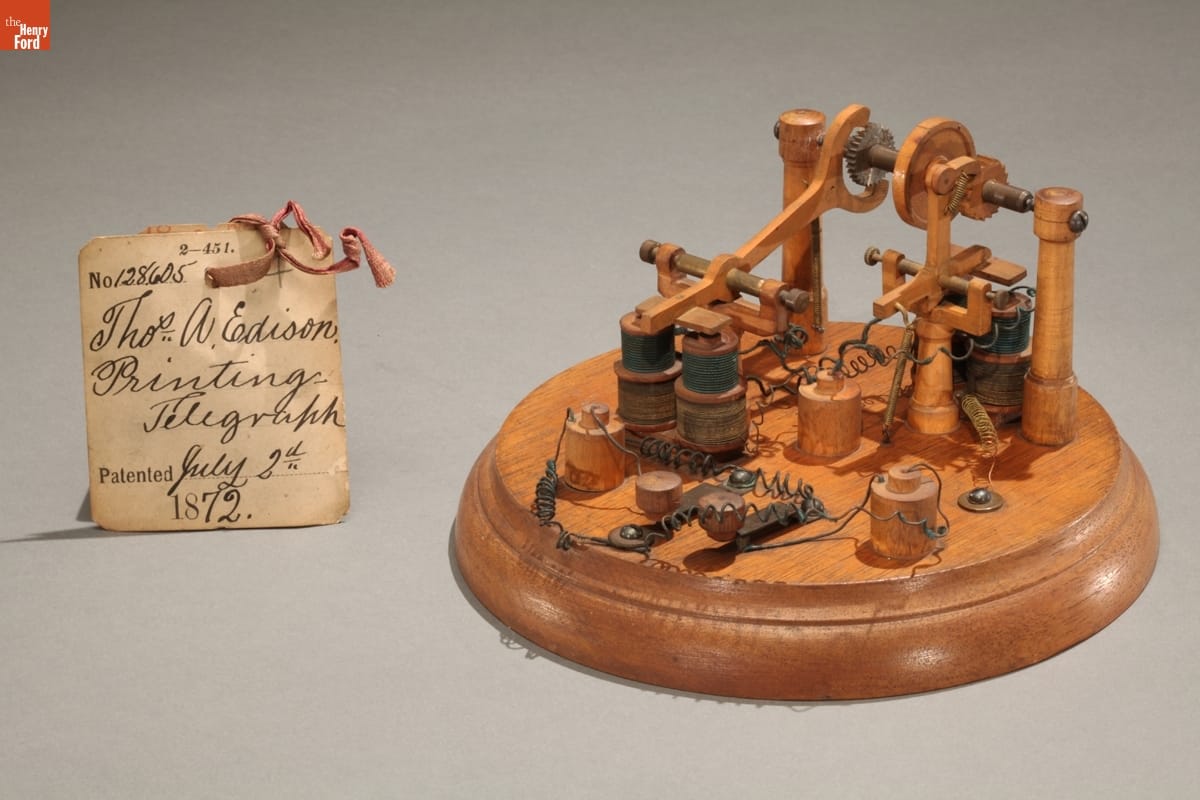 the
Henry
Ford
2—451.
No 128,605
Thos. A. Edison,
Printing
Telegraph
Patented July 2d
1872.